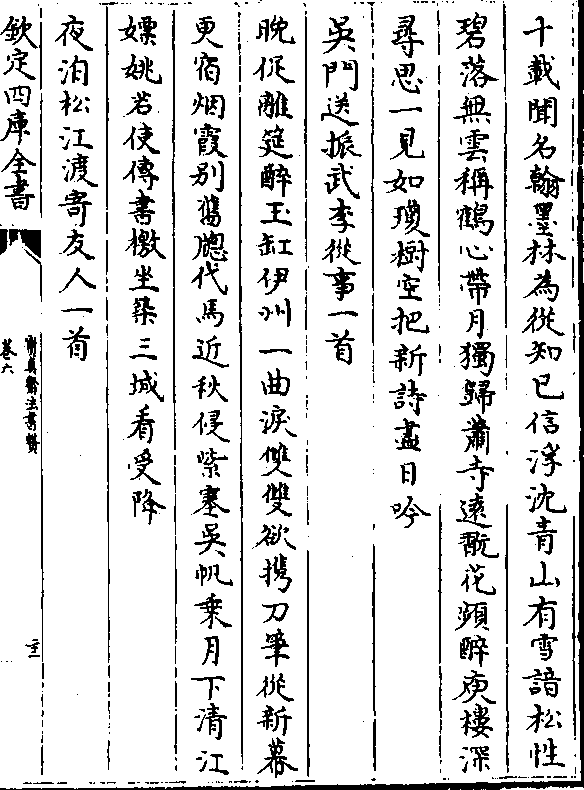 十載聞名翰墨林為從知已信浮沈青山有雪諳松性
碧落無雲稱鶴心帶月獨歸蕭寺逺翫花頻醉庾樓深
尋思一見如瓊樹空把新詩盡日吟
吳門送振武李從事一首
晩促離筵醉玉缸伊州一曲淚雙雙欲擕刀筆從新幕
更宿烟霞别舊牕代馬近秋侵紫塞吳帆乗月下清江
嫖姚若使傳書檄坐築三城看受降
夜泊松江渡寄友人一首
欽定四庫全書
寳真齋法書贊
卷六